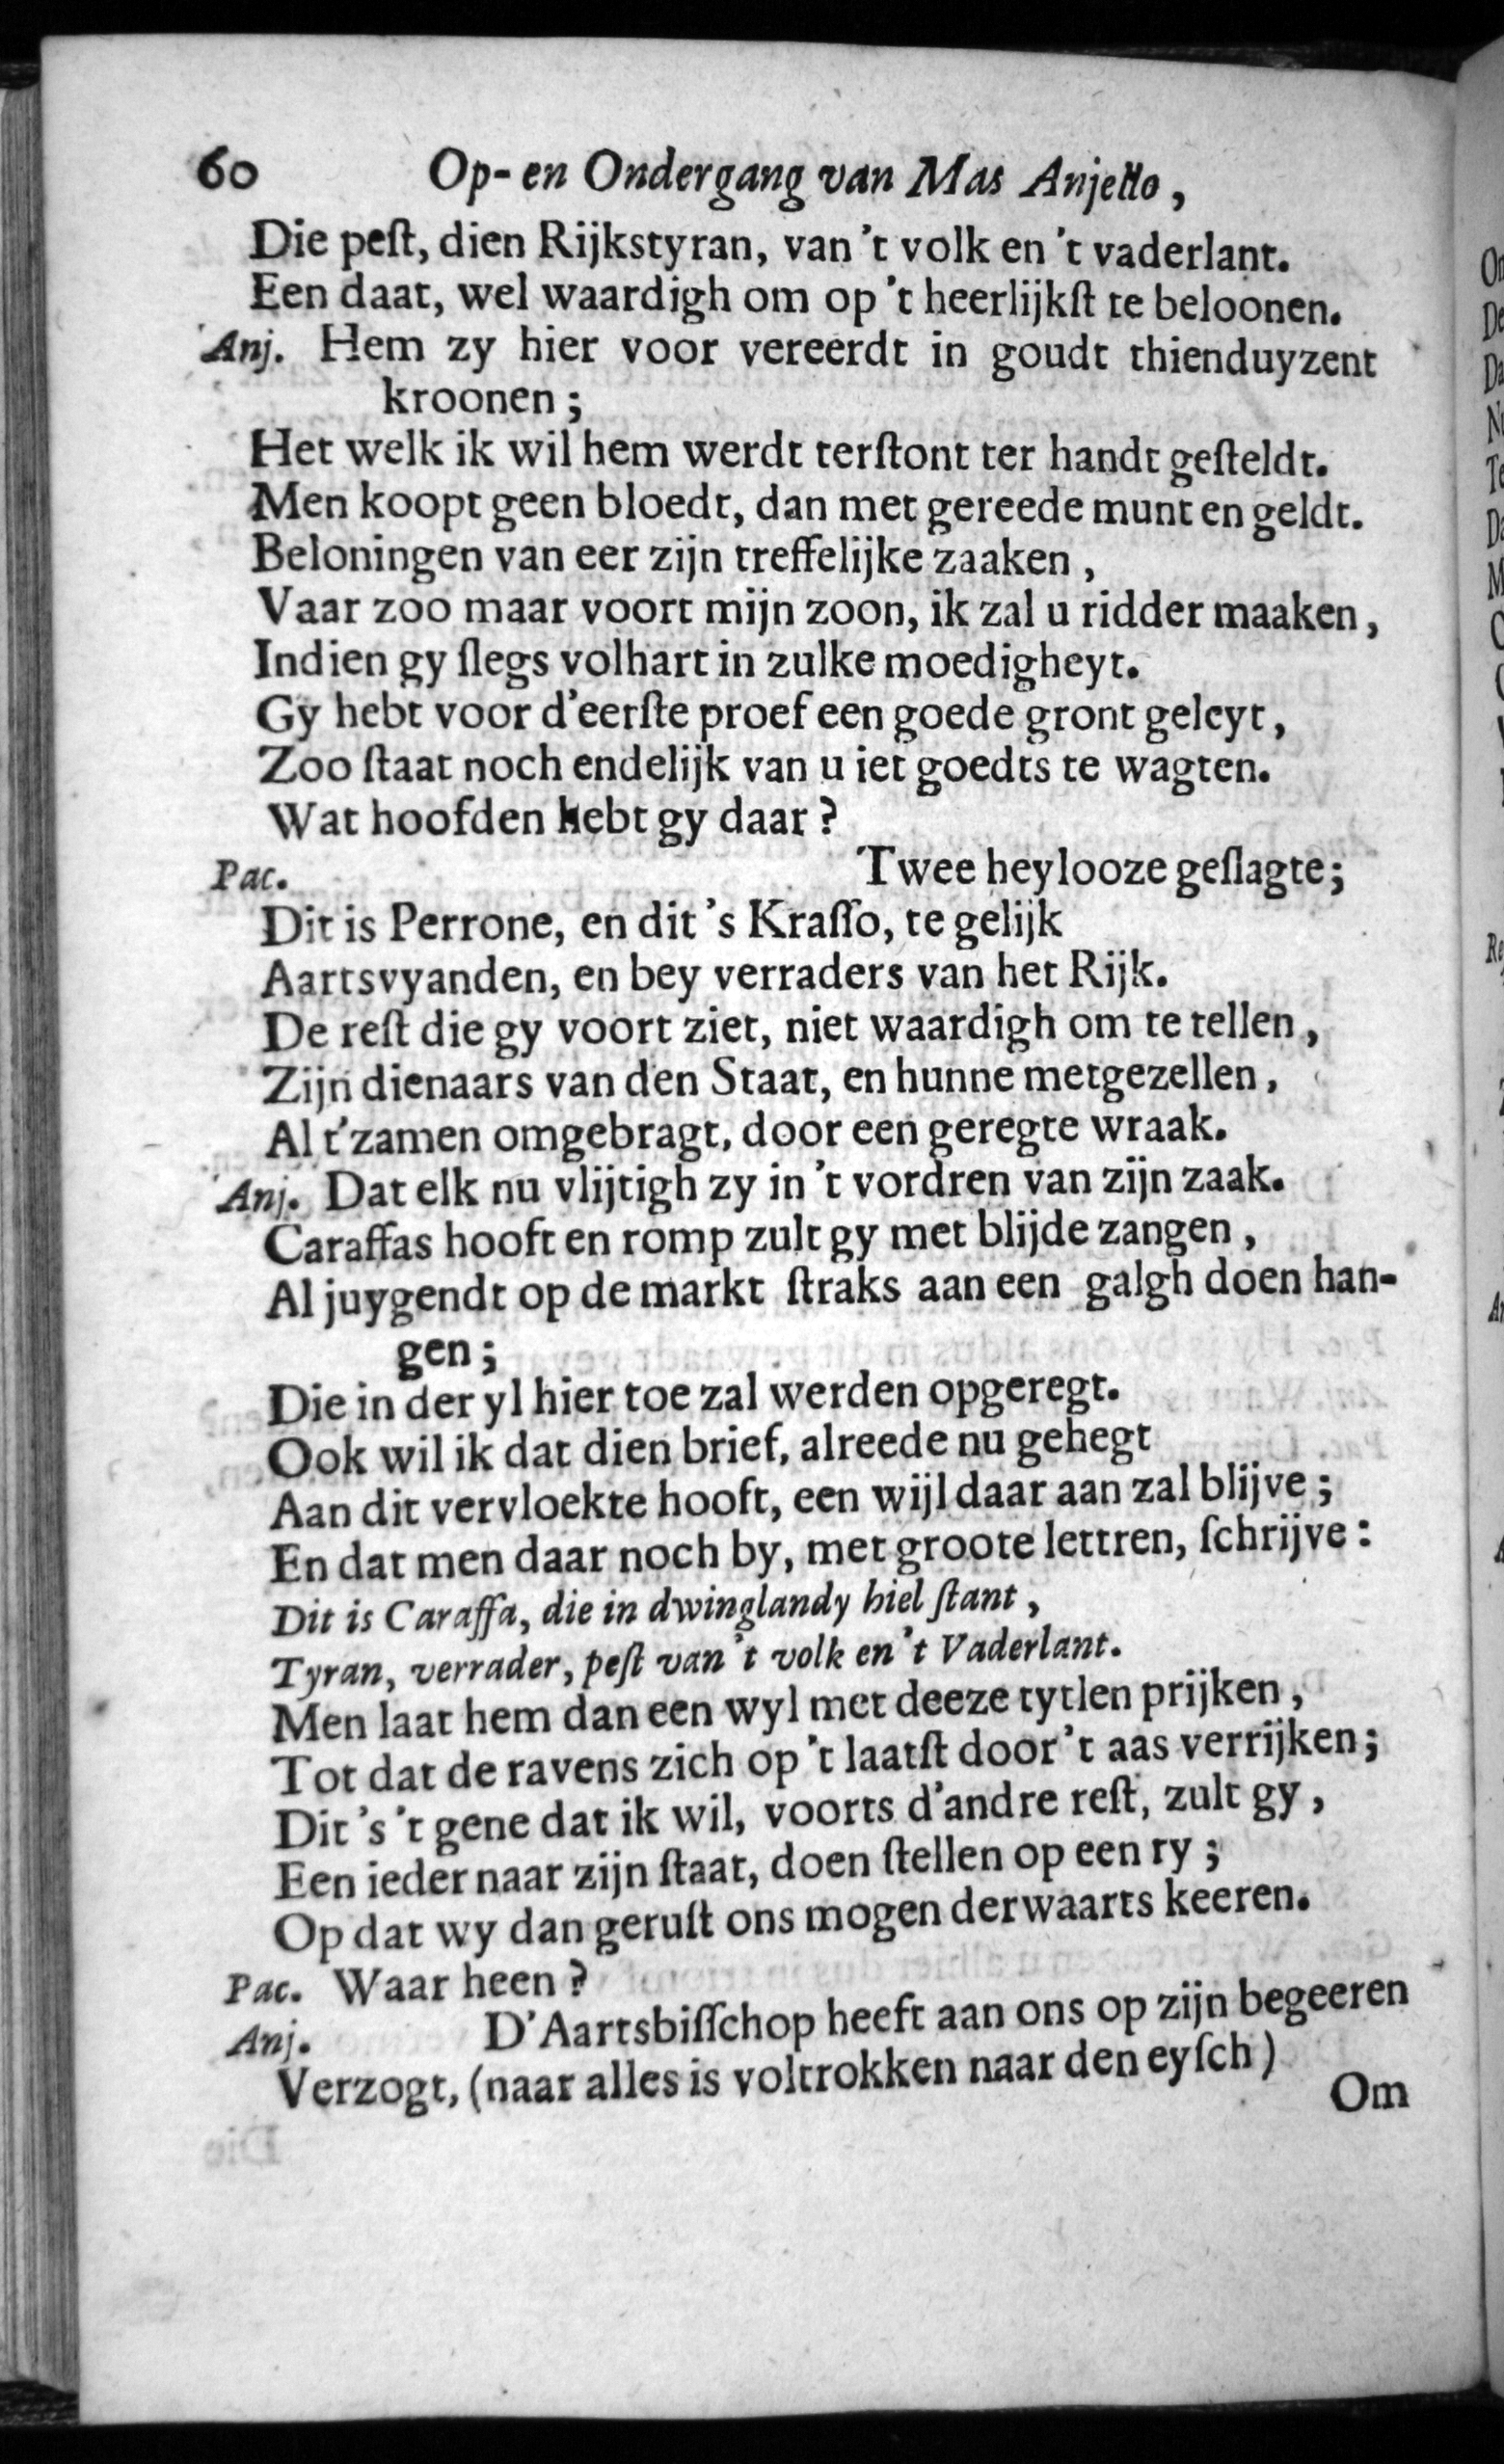 60 Op- en Ondergang van Mas Anjello,
Die peſt, dien Rijkstyran, van 't volk en 't vaderlant.
Een daat, wel waardigh om op 't heerlijkſt te beloonen.
Anj. Hem zy hier voor vereerdt in goudt thienduyzent
kroonen;
Het welk ik wil hem werdt terſtont ter handt geſteldt.
Men koopt geen bloedt, dan met gereede munt en geldt.
Beloningen van eer zijn treffelijke zaaken,
Vaar zoo maar voort mijn zoon, ik zal u ridder maaken,
Indien gy ſlegs volhart in zulke moedigheyt.
Gy hebt voor d'eerſte proef een goede gront geleyt,
Zoo ſtaat noch endelijk van u iet goedts te wagten.
Wat hoofden hebt gy daar?
Pac. Twee heylooze geſlagte;
Dit is Perrone, en dit 's Kraſſo, te gelijk
Aartsvyanden, en bey verraders van het Rijk.
De reſt die gy voort ziet, niet waardigh om te tellen,
Zijn dienaars van den Staat, en hunne metgezellen,
Al t'zamen omgebragt, door een geregte wraak.
Anj. Dat elk nu vlijtigh zy in 't vordren van zijn zaak.
Caraffas hooft en romp zult gy met blijde zangen,
Al juygendt op de markt ſtraks aan een galgh doen han-
gen;
Die in der yl hier toe zal werden opgeregt.
Ook wil ik dat dien brief, alreede nu gehegt
Aan dit vervloekte hooft, een wijl daar aan zal blijve;
En dat men daar noch by, met groote lettren, ſchrijve:
Dit is Caraffa, die in dwinglandy hiel ſtant,
Tyran, verrader, peſt van 't volk en 't Vaderlant.
Men laat hem dan een wyl met deeze tytlen prijken,
Tot dat de ravens zich op 't laatſt door 't aas verrijken;
Dit 's 't gene dat ik wil, voorts d'andre reſt, zult gy,
Een ieder naar zijn ſtaat, doen ſtellen op een ry;
Op dat wy dan geruſt ons mogen derwaarts keeren.
Pac. Waar heen?
Anj. D'Aartsbiſſchop heeft aan ons op zijn begeeren
Verzogt, (naar alles is voltrokken naar den eyſch)
Om